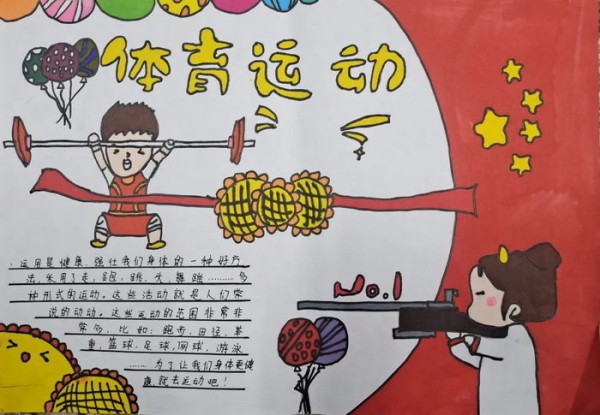 体育运动
No.1
运用是健康、强壮我们身体的一种好方
法,采用了走,跑,跳,
舞蹈………多
种形式的运动。这些活动就是人们常
说的动动。这些运动的范围非常非
常多,比如:跑步,田径,
重,篮球,足球,网球,游泳
……为了让我们身体更健
康,就去运动吧!